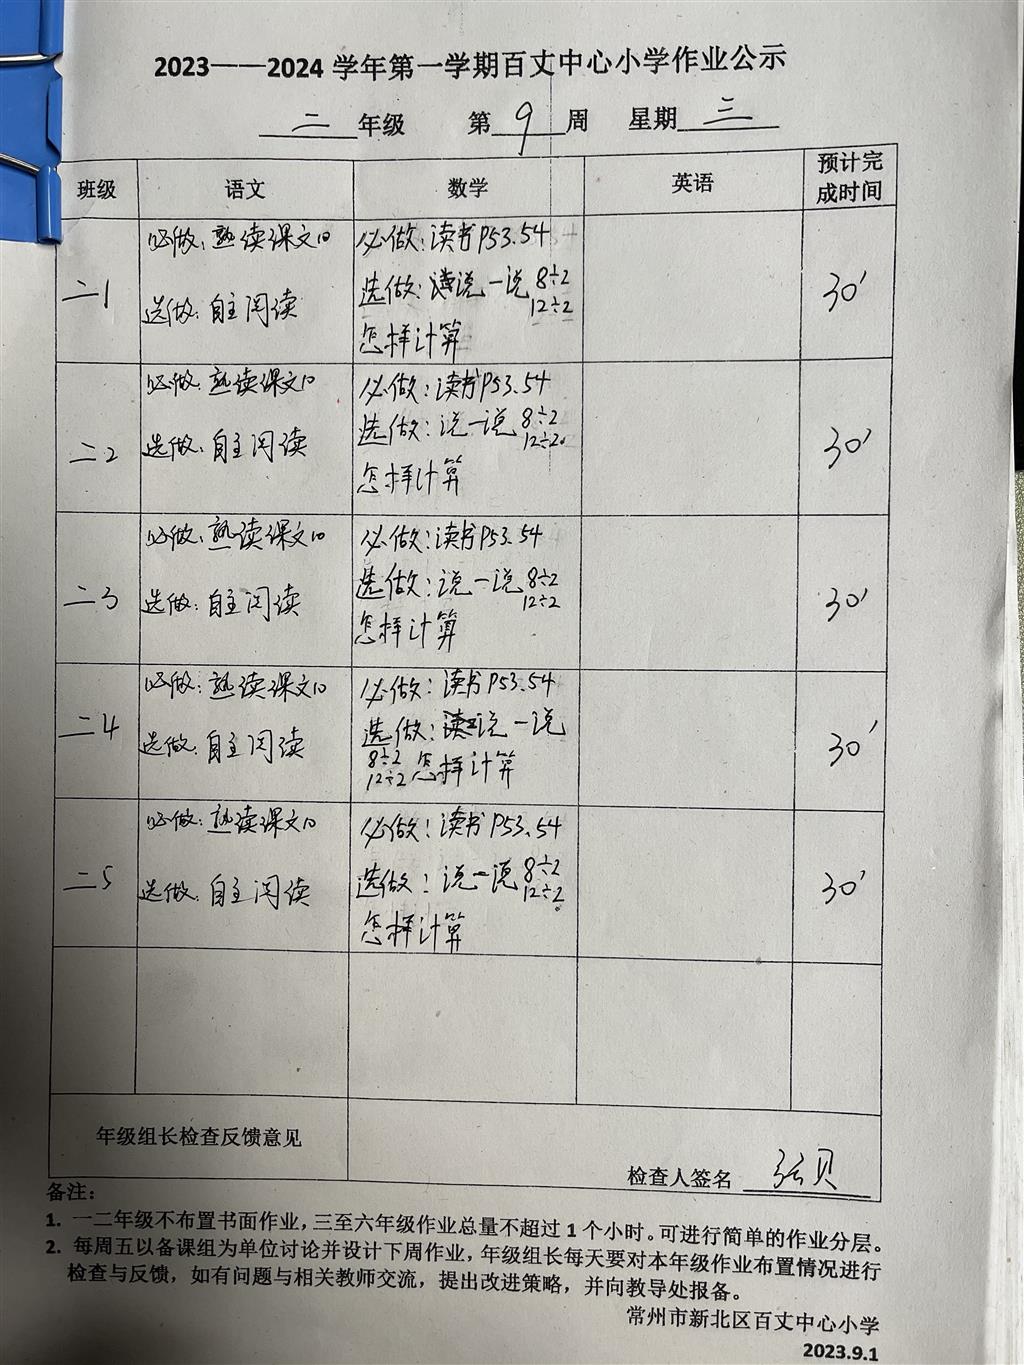 2023——2024 学年第一学期百丈中心小学作业公示
二 年级 第 9 周 星期 三
班级 语文 数学 英语 预计完成时间
二1
必做：熟读课文10
选做：自主阅读
必做：读书P53.54
选做：说一说 8÷2
12÷2
怎样计算
30'
二2
必做：熟读课文10
选做：自主阅读
必做：读书P53.54
选做：说一说 8÷2
12÷2
怎样计算
30'
二3
必做：熟读课文10
选做：自主阅读
必做：读书P53.54
选做：说一说 8÷2
12÷2
怎样计算
30'
二4
必做：熟读课文10
选做：自主阅读
必做：读书P53.54
选做：说一说
8÷2
12÷2 怎样计算
30'
二5
必做：熟读课文10
选做：自主阅读
必做：读书P53.54
选做：说一说 8÷2
12÷2
怎样计算
30'
年级组长检查反馈意见
检查人签名
备注：
1. 一二年级不布置书面作业，三至六年级作业总量不超过 1 个小时。可进行简单的作业分层。
2. 每周五以备课组为单位讨论并设计下周作业，年级组长每天要对本年级作业布置情况进行
检查与反馈，如有问题与相关教师交流，提出改进策略，并向教导处报备。
常州市新北区百丈中心小学
2023.9.1